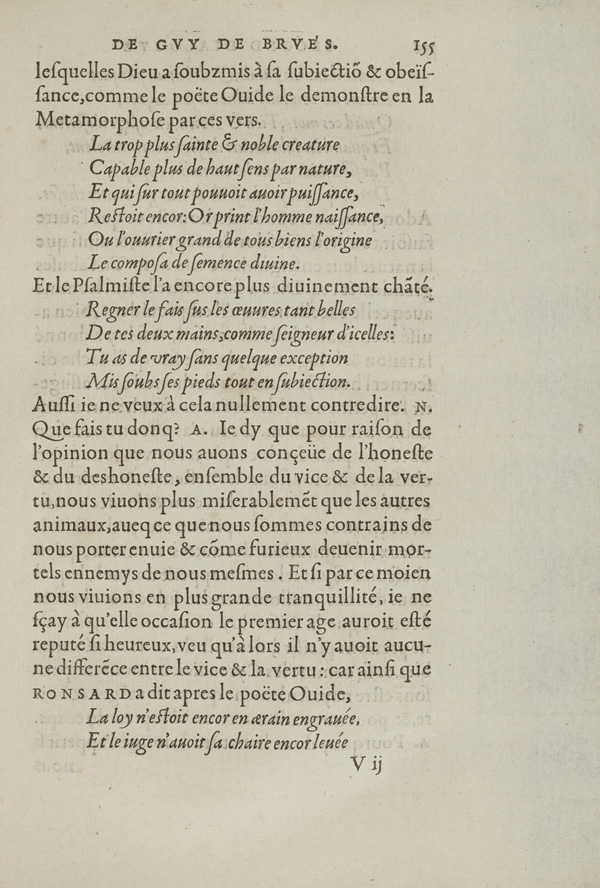 DE GVY DE BRVE'S. 155
leſquelles Dieu a ſoubzmis à ſa ſubiectiō & obeïſ-
ſance, comme le poëte Ouide le demonſtre en la
Metamorphoſe par ces vers.
La trop plus ſainte & noble creature
Capable plus de haut ſens par nature,
Et qui ſur tout pouuoit auoir puiſſance,
Reſtoit encor: Or print l'homme naiſſance,
Ou l'ouurier grand de tous biens l'origine
Le compoſa de ſemence diuine.
Et le Pſalmiſte l'a encore plus diuinement chāté.
Regner le fais ſus les œuures tant belles
De tes deux mains, comme ſeigneur d'icelles:
Tu as de vray ſans quelque exception
Mis ſoubs ſes pieds tout en ſubiection.
Auſſi ie ne veux à cela nullement contredire. N.
Que fais tu donq? A. Ie dy que pour raiſon de
l'opinion que nous auons conçeüe de l'honeſte
& du deshoneſte, enſemble du vice & de la ver-
tu, nous viuons plus miſerablemēt que les autres
animaux, aueq ce que nous ſommes contrains de
nous porter enuie & cōme furieux deuenir mor-
tels ennemys de nous meſmes. Et ſi par ce moien
nous viuions en plus grande tranquillité, ie ne
ſçay à qu'elle occaſion le premier age auroit eſté
reputé ſi heureux, veu qu'à lors il n'y auoit aucu-
ne differēce entre le vice & la vertu: car ainſi que
RONSARD a dit apres le poëte Ouide,
La loy n'eſtoit encor en ærain engrauée,
Et le iuge n'auoit ſa chaire encor leuée
V ij